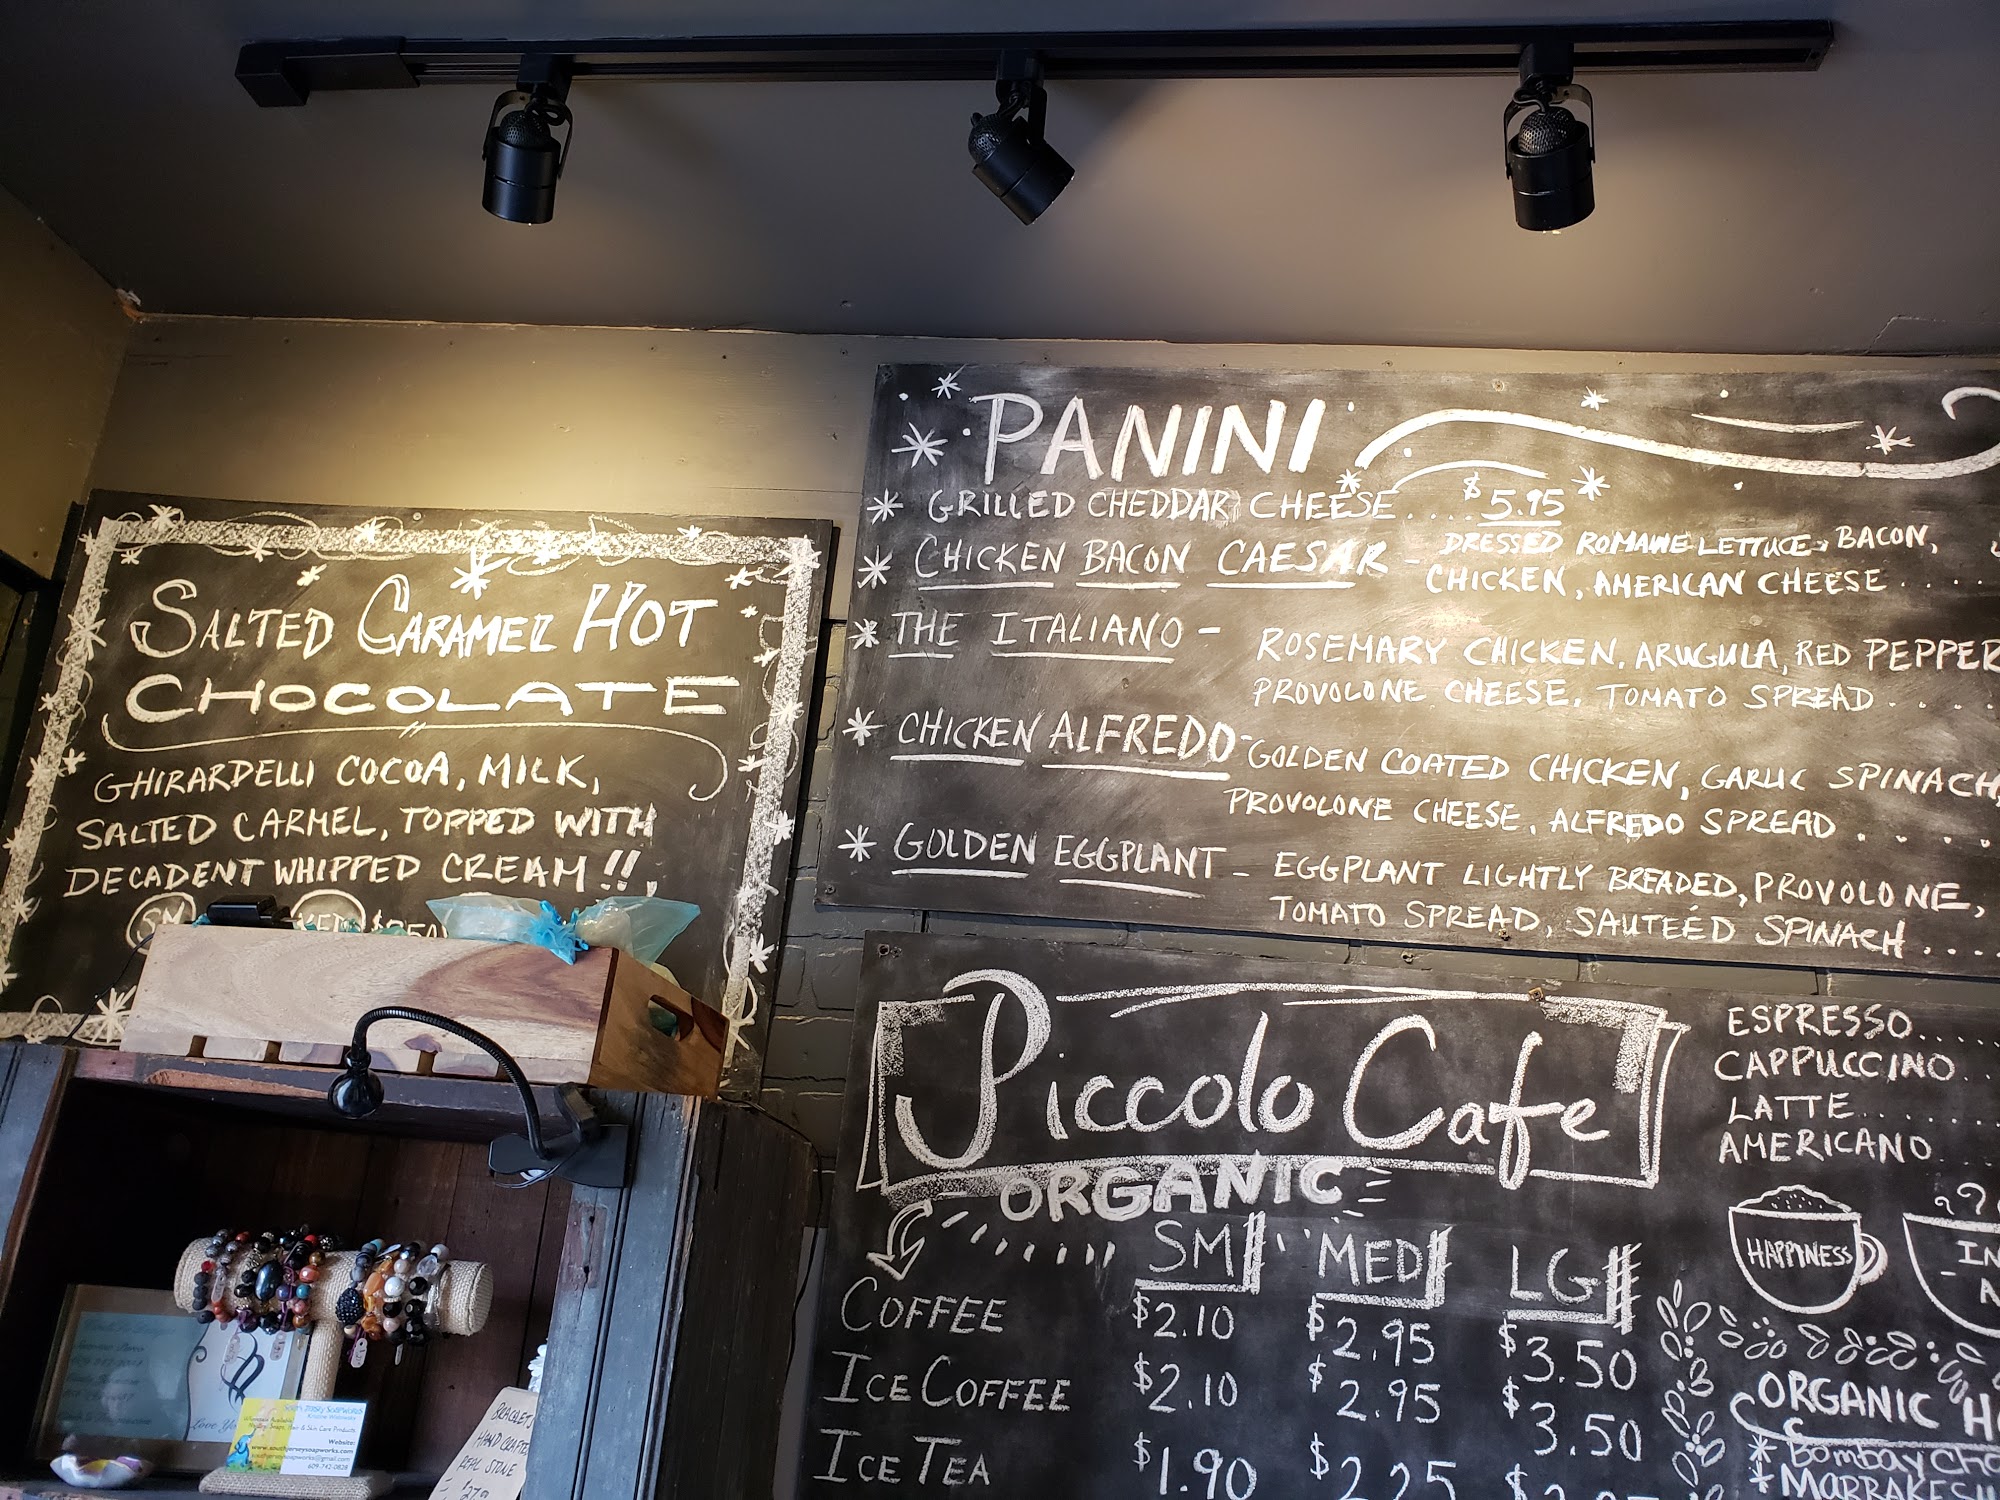 SALTED CARAMEL HOT
CHOCOLATE
GHIRARDELLI COCOA, MILK,
SALTED CARMEL, TOPPED WITH
DECADENT WHIPPED CREAM!!
SM
PANINI
GRILLED CHEDDAR CHEESE .... $5.95
CHICKEN BACON CAESAR - DRESSED ROMAINE LETTUCE, BACON,
CHICKEN, AMERICAN CHEESE ....
THE ITALIANO - ROSEMARY CHICKEN, ARUGULA, RED PEPPER
PROVOLONE CHEESE, TOMATO SPREAD ....
CHICKEN ALFREDO - GOLDEN COATED CHICKEN, GARLIC SPINACH,
PROVOLONE CHEESE, ALFREDO SPREAD ....
GOLDEN EGGPLANT - EGGPLANT LIGHTLY BREADED, PROVOLONE,
TOMATO SPREAD, SAUTEÉD SPINACH ....
Piccolo Cafe
ORGANIC
SM MED LG
COFFEE $2.10 $2.95 $3.50
ICE COFFEE $2.10 $2.95 $3.50
ICE TEA $1.90 $2.25
ESPRESSO.....
CAPPUCCINO..
LATTE.......
AMERICANO...
HAPPINESS
IN
ORGANIC H
Bombay Cha
MARRAKESH
BRACELETS
HAND CRAFTED
REAL STONE
South Jersey Soapworks
Website:
www.southjerseysoapworks.com
southjerseysoapworks@gmail.com
609-742-0828
Love You